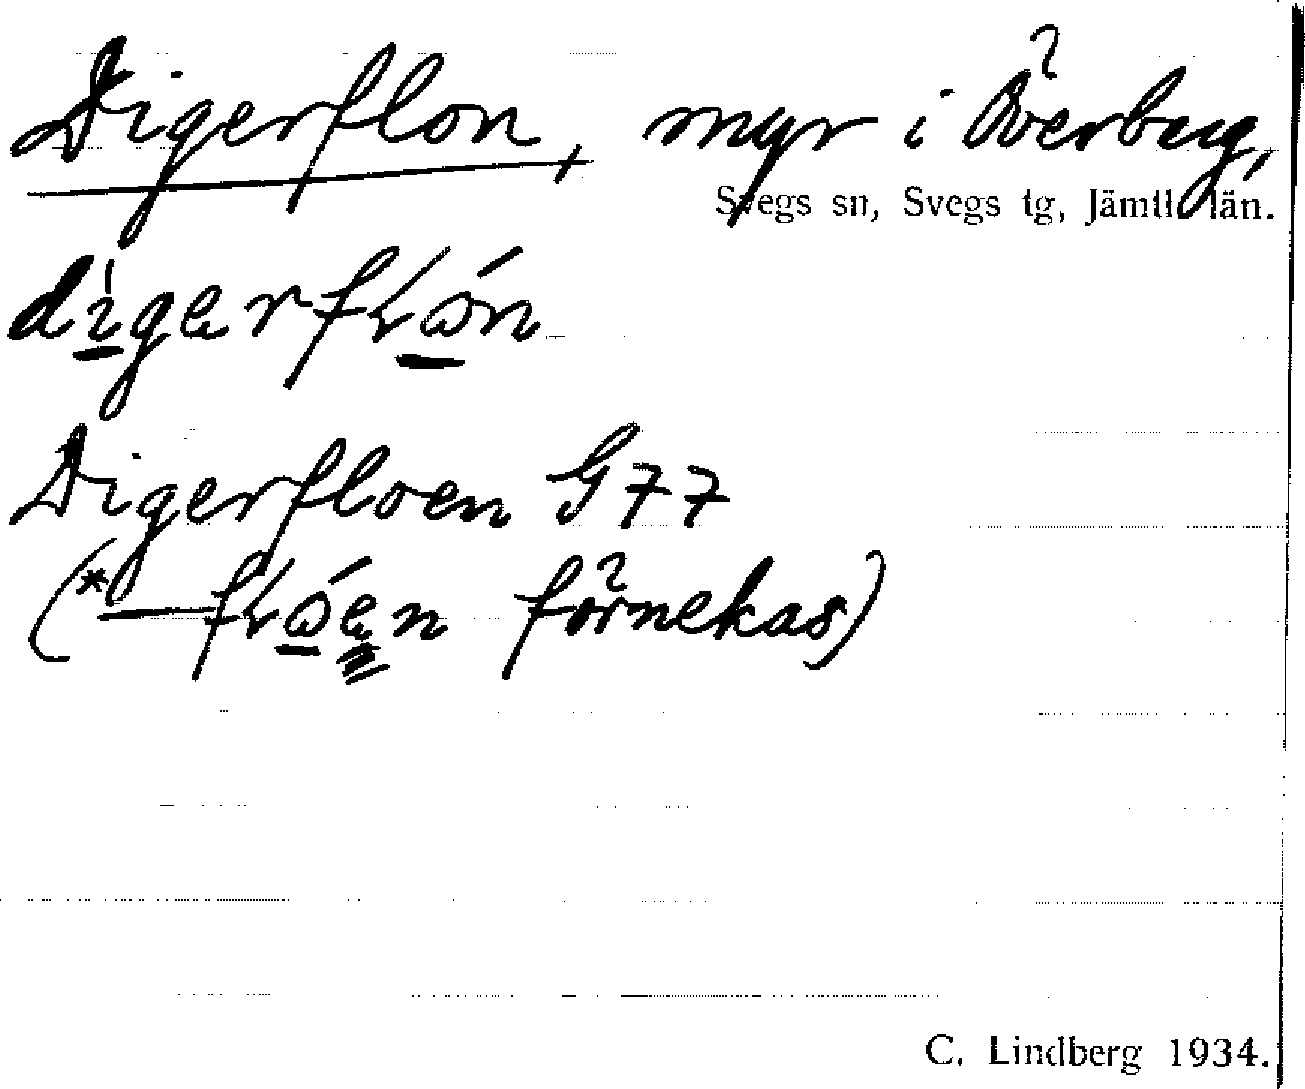 Digerflon, myr i Överberg,
Svegs sn, Svegs tg, Jämtl. län.
dìgerfɫωń
Digerfloen G77
(*—fɫώen förnekas)
C. Lindberg 1934.